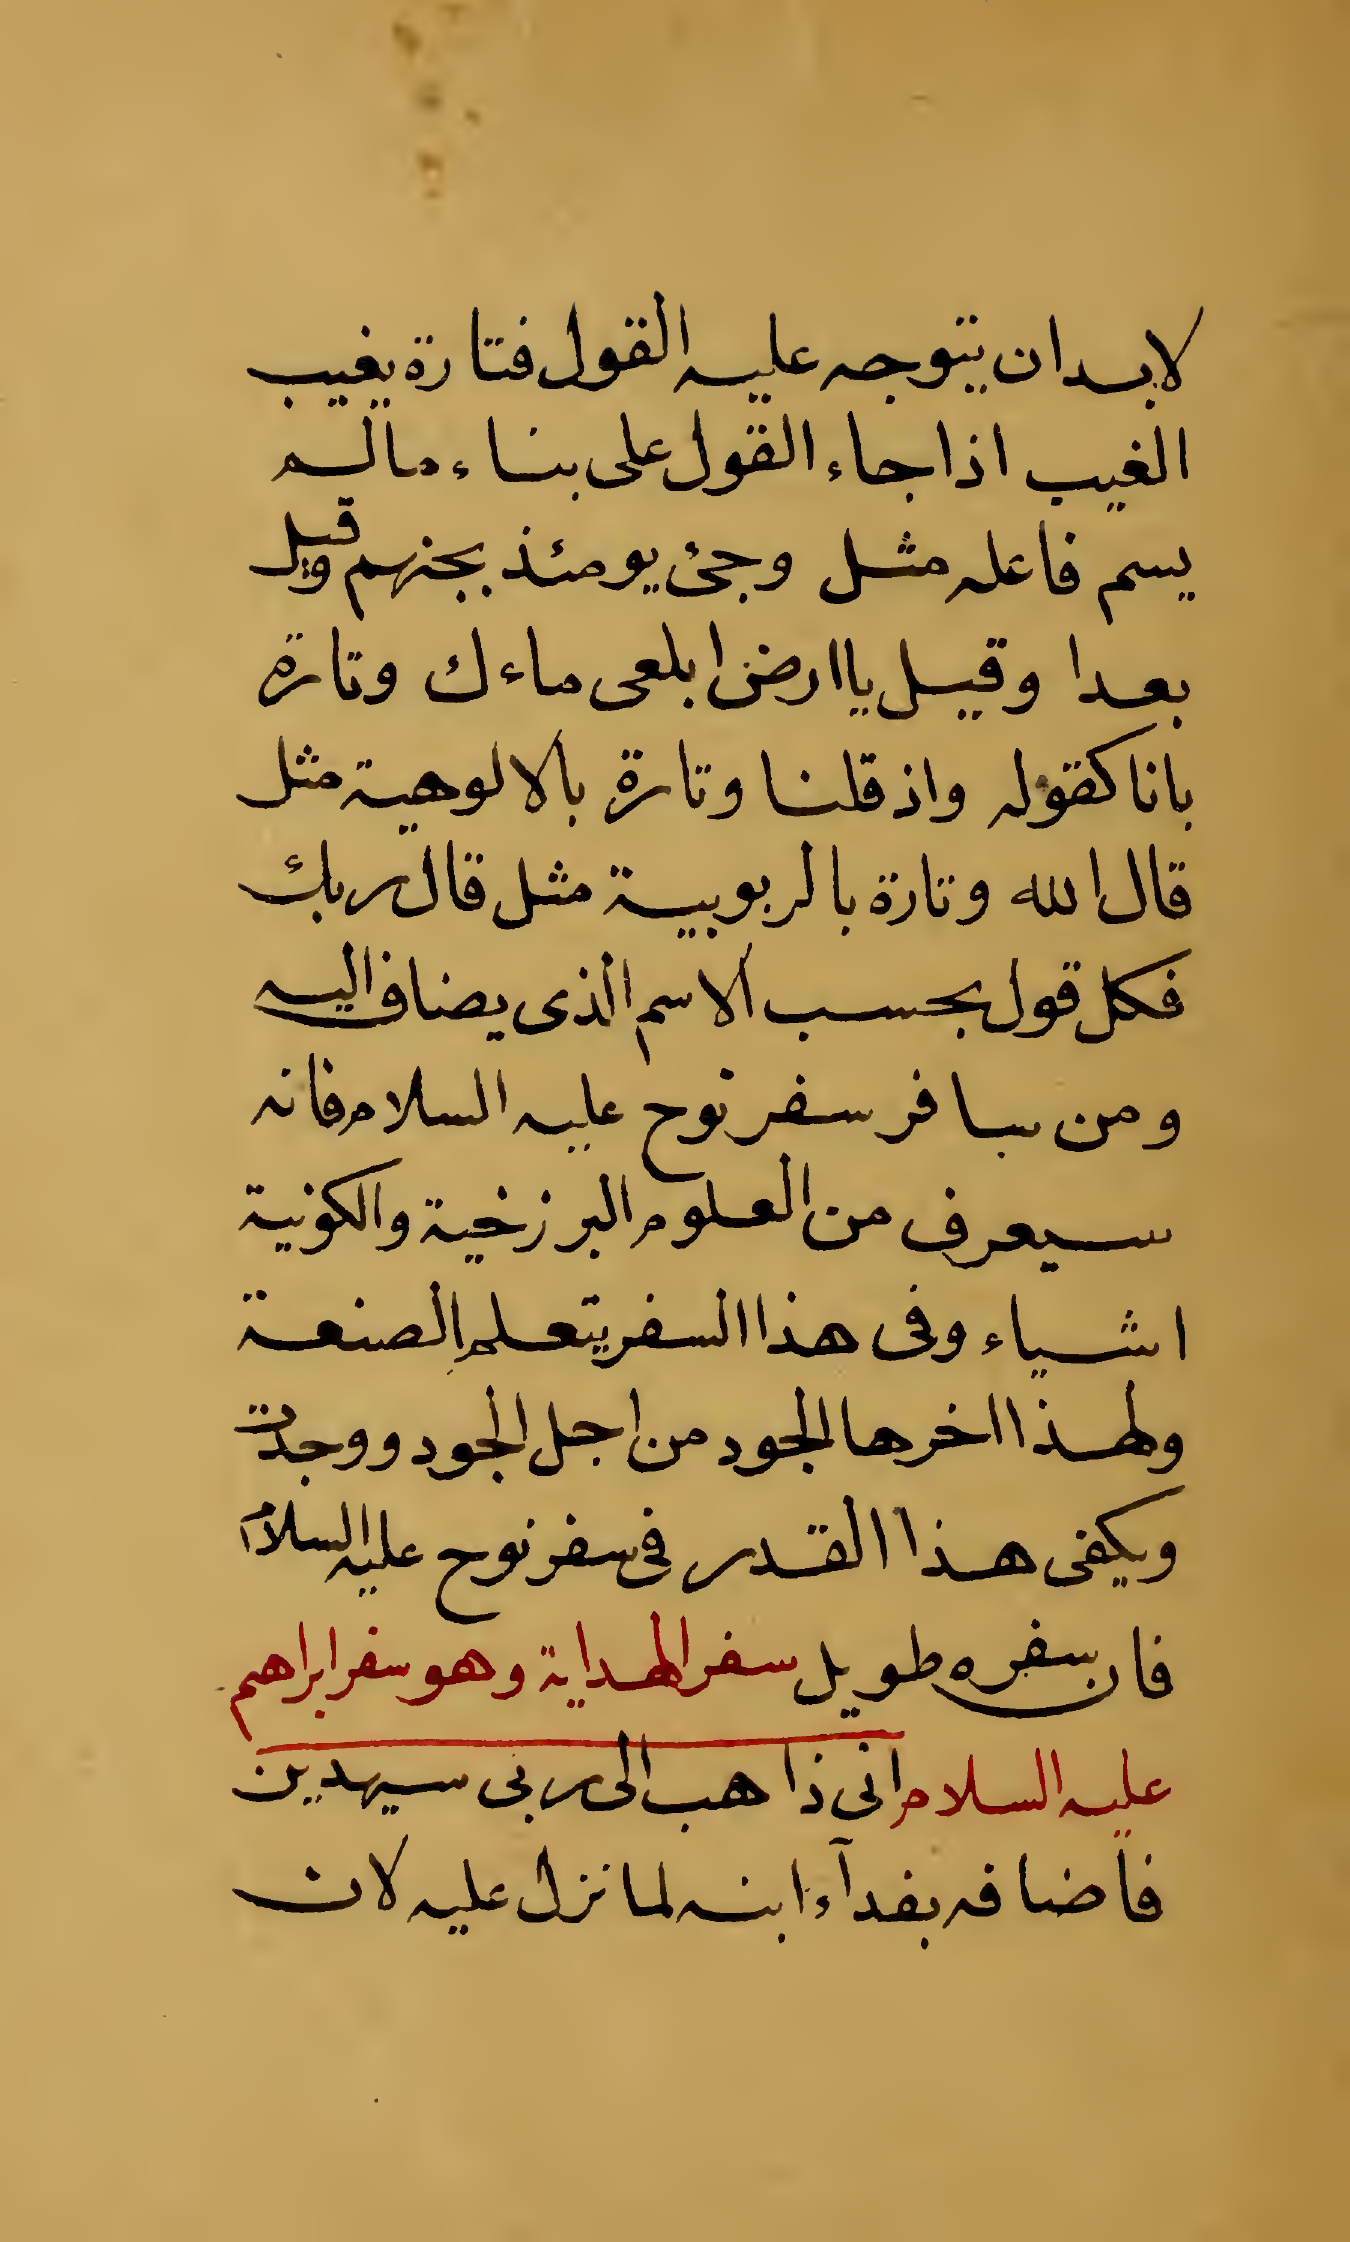 لابد ان يتوجه عليه القول فتارة يغيب
الغيب اذا جاء القول على بناء مالم
يسم فاعله مثل وجئ يومئذ بجنهم وقيل
بعدا وقيل يا ارض ابلعى ماءك وتارة
بانا كقوله واذ قلنا وتارة بالالوهية مثل
قال الله وتارة بالربوبية مثل قال ربك
فكل قول بحسب الاسم الذى يضاف اليه
ومن سافر سفر نوح عليه السلام فانه
سيعرف من العلوم البرزخية والكونية
اشياء وفى هذا السفر يتعلم الصنعة
ولهذا اخرها الجود من اجل الجود ووجدت
ويكفى هذا القدر فى سفر نوح عليه السلام
فان سفره طويل سفر الهداية وهو سفر ابراهم
عليه السلام انى ذاهب الى ربى سيهدين
فاضافه بفدآء ابنه لما نزل عليه لان